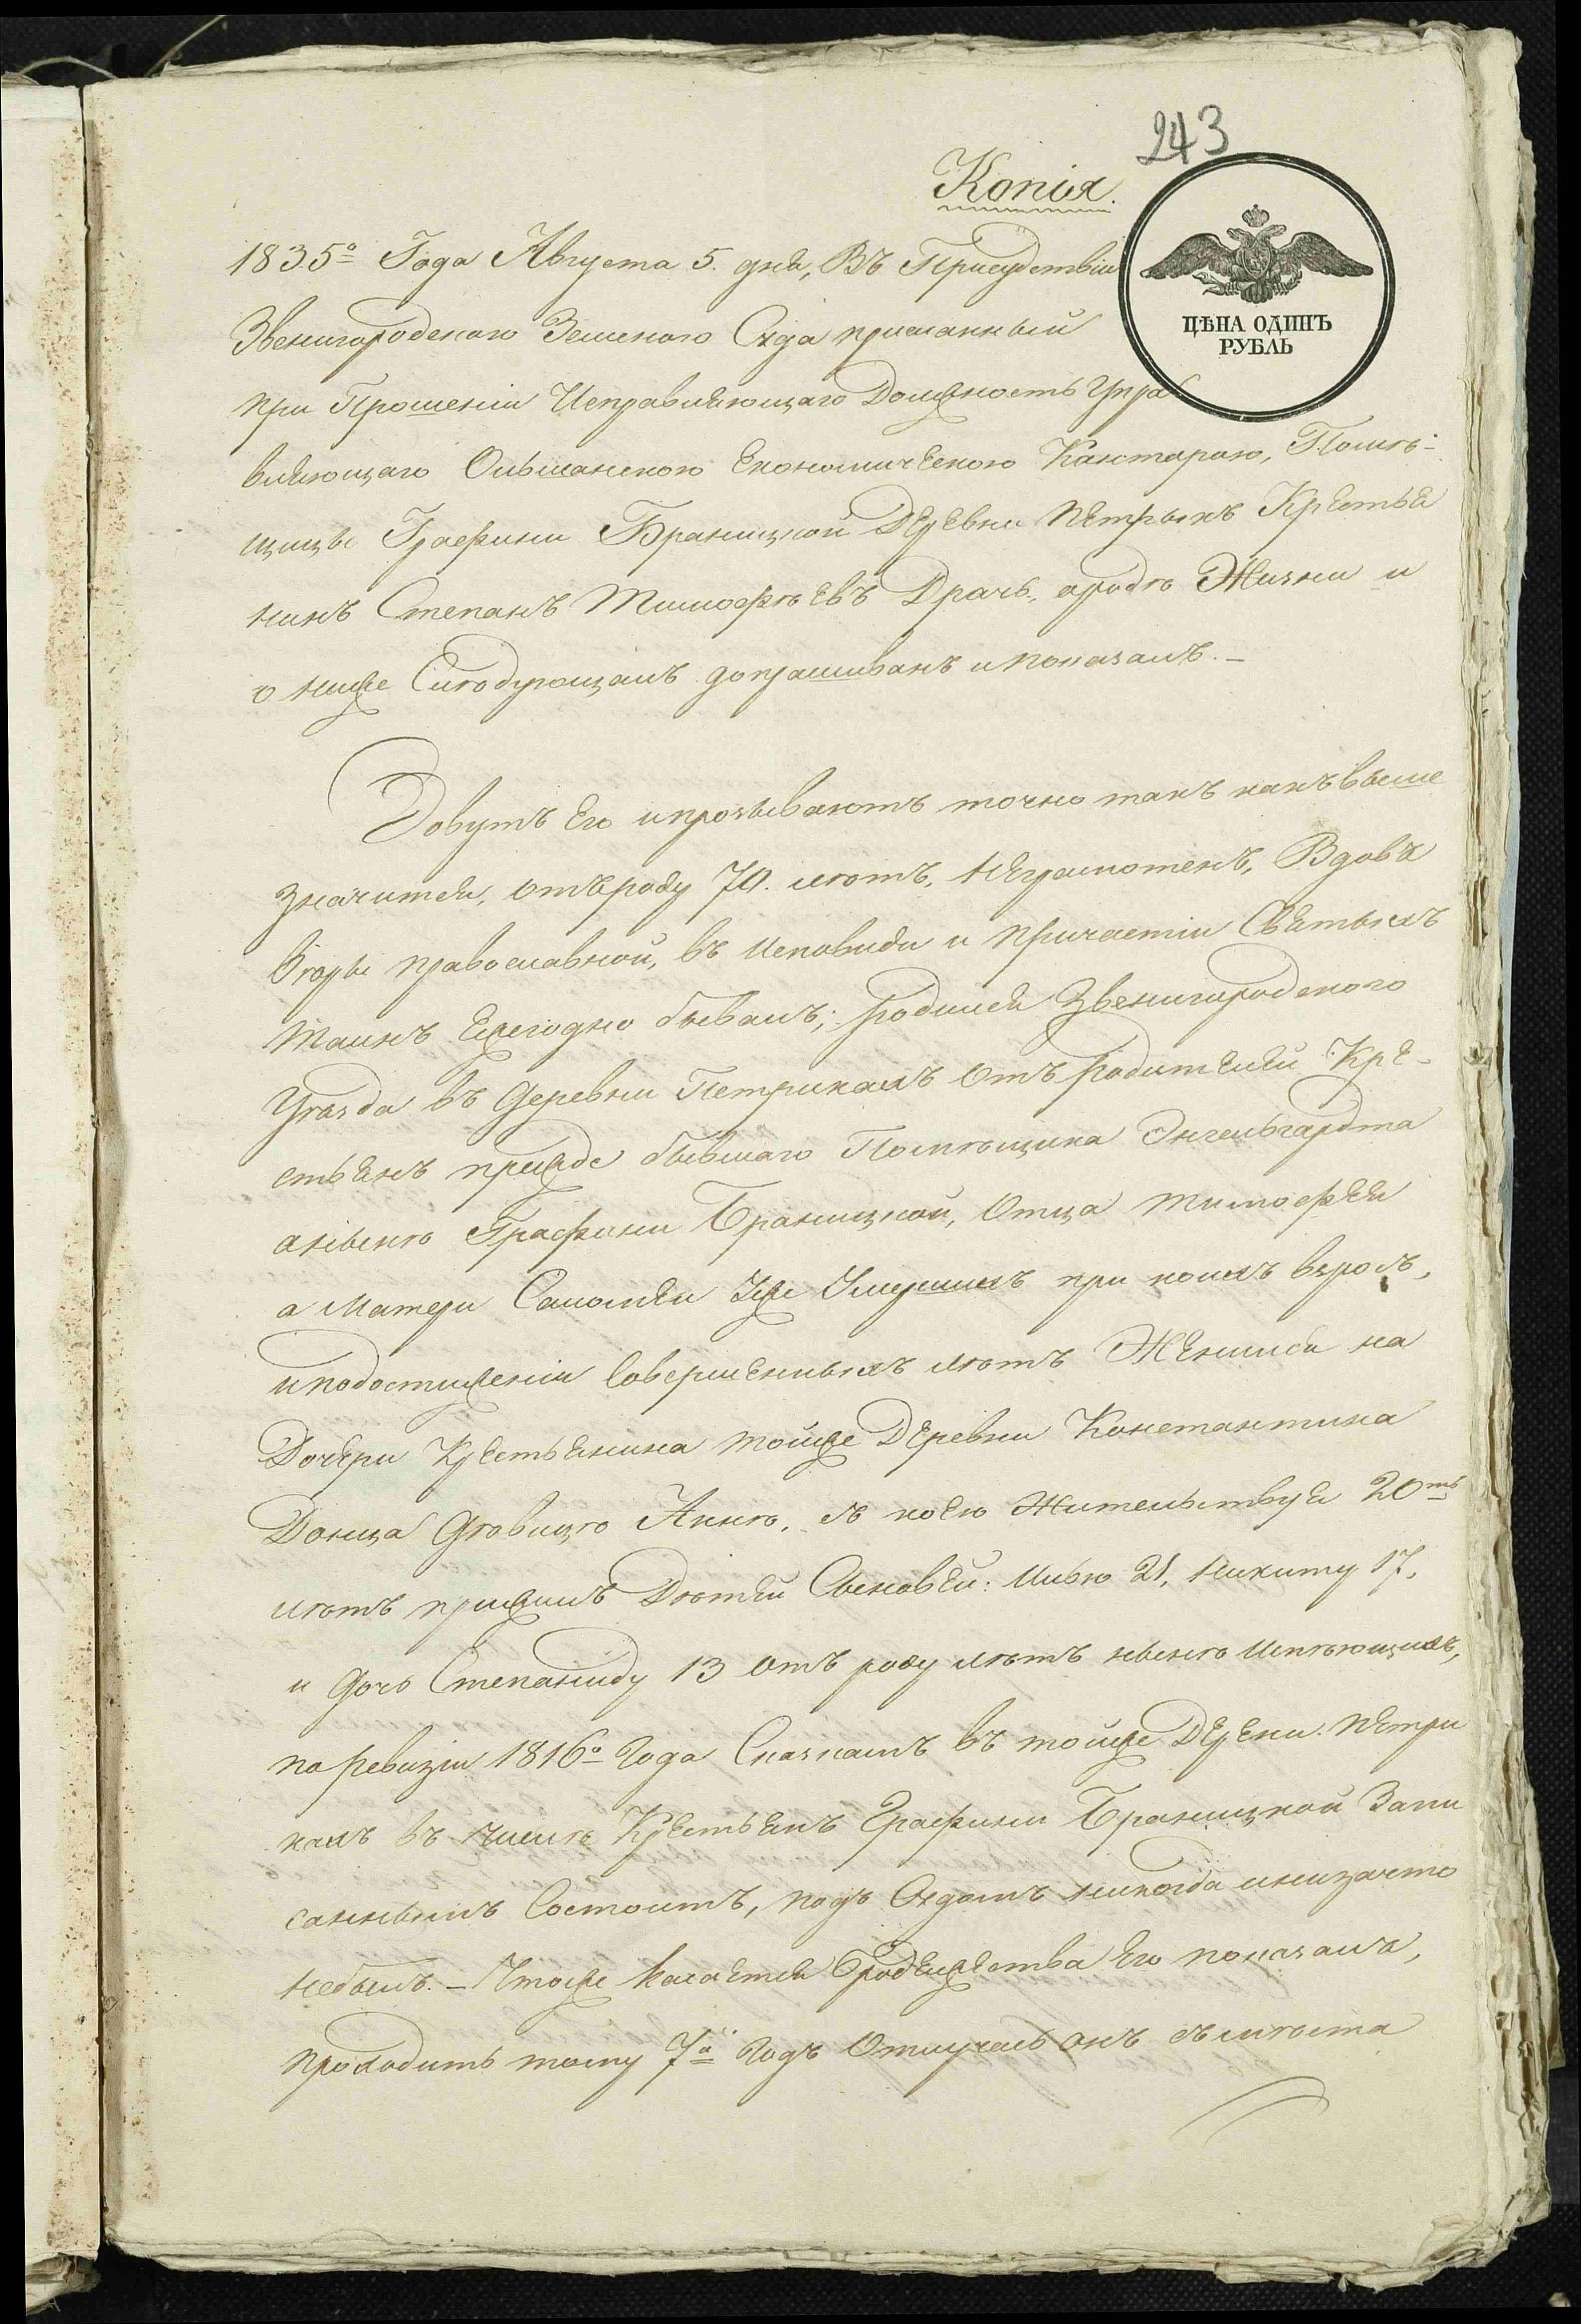 243
Копія.
ЦѢНА ОДИНЪ
РУБЛЬ
1835го Года Августа 5. дня, Въ Присудствіи
Звенигородскаго Земскаго Суда присланный
при Прошеніи Исправляющаго Должность Упра
вляющаго Ольшанскою Економическою Канторою, Помѣ-
щицы Графини Браницкой Деревни Петрыкъ Крестья
нинъ Степанъ Тимофѣевъ Драчь, о родѣ Жизни и
о ниже Слѣдующемъ допрашиванъ и показалъ. –
Зовутъ Его и прозываютъ точно такъ какъ выше
значится, отъ роду 70. лѣтъ, неграмотенъ, Вдовъ
Вѣры православной, въ исповиди и причастіи Святыхъ
Таинъ Ежегодно бывалъ; родился Звенигородского
Уѣзда въ деревни Петрикахъ отъ родителей Кре-
стьянъ прежде бывшаго Помѣщика Энгельгардта
а нынѣ Графини Браницкой, Отца Тимофея
а Матери Саломеи Уже Умершихъ при коихъ взросъ,
и по достиженіи Совершенныхъ лѣтъ Женился на
Дочери Крестьянина тойже Деревни Константина
Донца дѣвицѣ Аннѣ, съ коею Жительствуя 20ть
лѣтъ прижилъ Дѣтей Сыновей: Илью 21, Никиту 17,
и дочь Степаниду 13 отъ роду лѣтъ нынѣ Имѣющихъ,
по ревизіи 1816го Года Сказкамъ въ тойже Деревни Петри
кахъ въ числѣ Крестьянъ Графини Браницкой Запи
саннымъ Состоитъ, подъ Судомъ никогда и низачто
небылъ. – Чтоже касается бродяжества Его показалъ,
проходитъ тому 7й Годъ Отлучась онъ съ мѣста